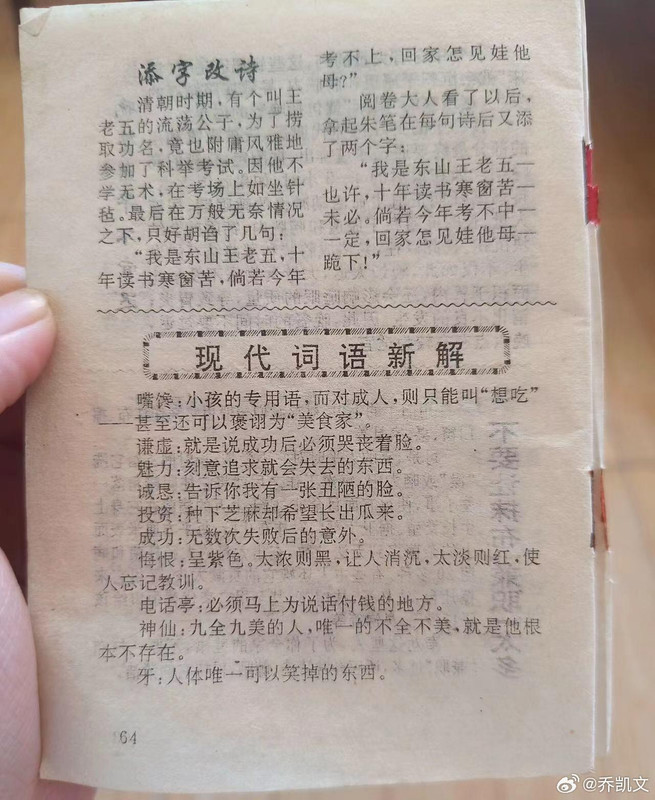 添字改诗
清朝时期，有个叫王
老五的流荡公子，为了捞
取功名，竟也附庸风雅地
参加了科举考试。因他不
学无术，在考场上如坐针
毡。最后在万般无奈情况
之下，只好胡诌了几句：
“我是东山王老五，十
年读书寒窗苦，倘若今年
考不上，回家怎见娃他
母？”
阅卷大人看了以后，
拿起朱笔在每句诗后又添
了两个字：
“我是东山王老五—
也许，十年读书寒窗苦—
未必。倘若今年考不中—
一定，回家怎见娃他母—
跪下！”
现代词语新解
嘴馋：小孩的专用语，而对成人，则只能叫“想吃”
——甚至还可以褒诩为“美食家”
谦虚：就是说成功后必须哭丧着脸。
魅力：刻意追求就会失去的东西。
诚恳：告诉你我有一张丑陋的脸。
投资：种下芝麻却希望长出瓜来。
成功：无数次失败后的意外。
悔恨：呈紫色。太浓则黑，让人消沉，太淡则红，使
人忘记教训。
电话亭：必须马上为说话付钱的地方。
神仙：九全九美的人，唯一的不全不美，就是他根
本不存在。
牙：人体唯一可以笑掉的东西。
64
@乔凯文